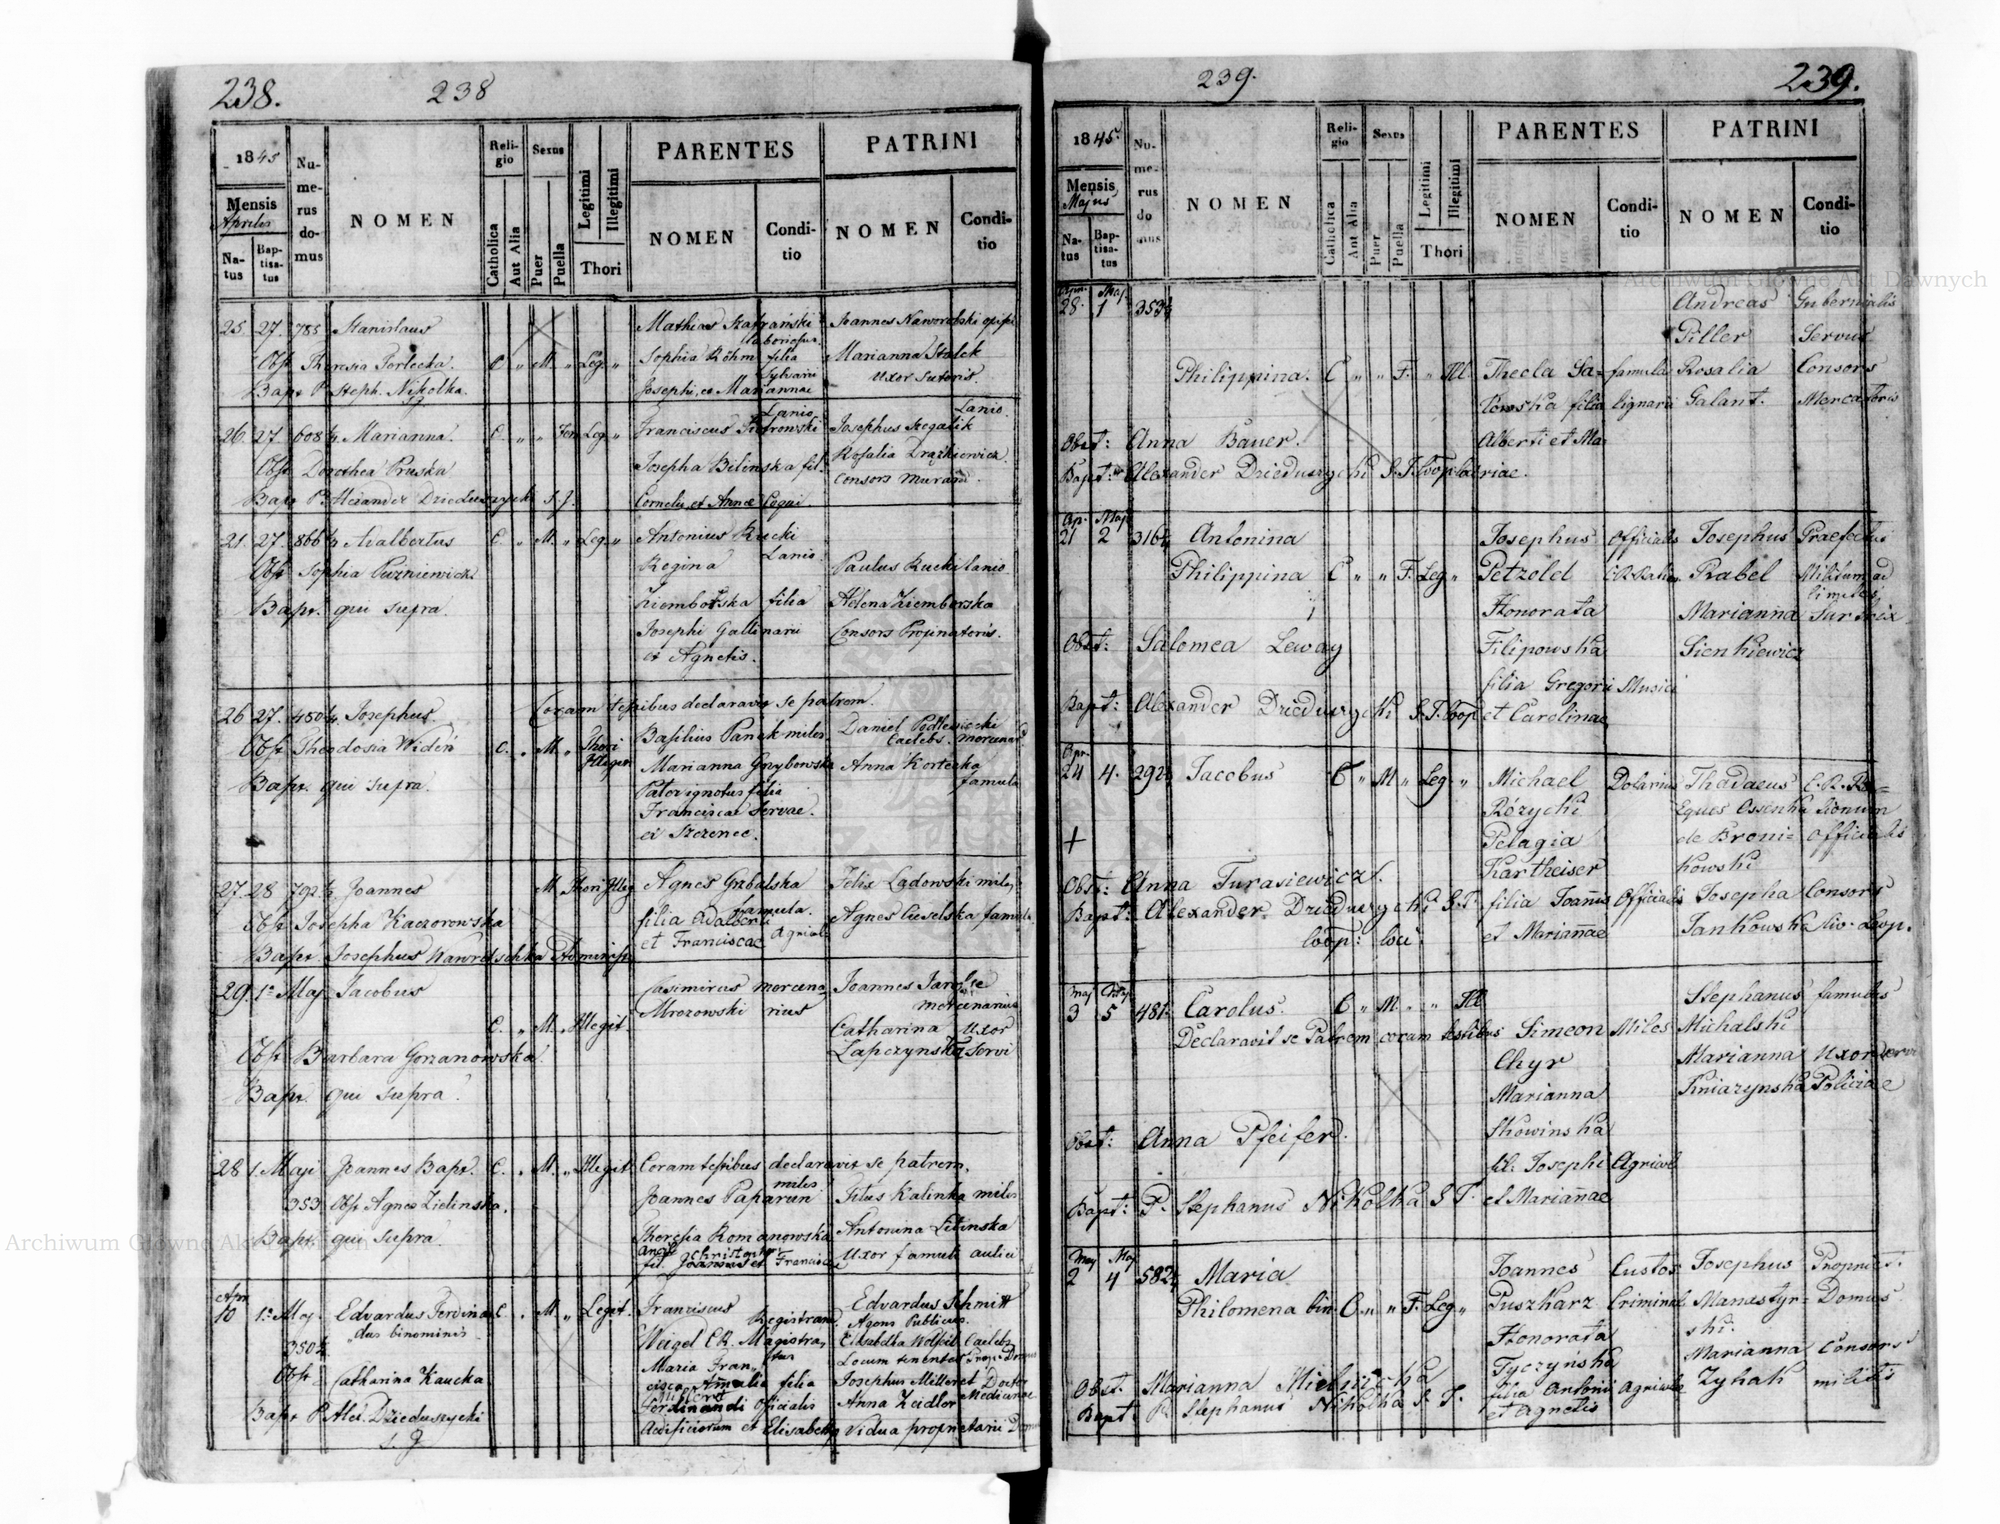 238.
238
1845
Mensis
Aprilis
Natus
Baptisatus
Numerus domus
NOMEN
Religio
Catholica
Aut Alia
Sexus
Puer
Puella
Legitimi
Illegitimi
Thori
PARENTES
NOMEN
Conditio
PATRINI
NOMEN
Conditio
25 27 785 Stanislaus
C " M. " Leg. "
Mathias Szafrański
Joannes Naworolski
Obst Theresia Torlecka.
Sophia Röhm filia
Marianna Stalek
uxor sutoris.
Bapt P. Steph. Nikolka.
Josephi, et Mariannae
26 27 608 Marianna.
C. " " Fem Leg. "
Franciscus Piotrowski
Lanio.
Josephus Szegalik
Lanio.
Obst Dorothea Pruska
Josepha Bilinska fil.
Rosalia Drążkiewicz
consors murarii.
Bapt P. Alexander Dzieduszycki S. J.
Cornelii, et Annae
21. 27. 866 Adalbertus
C. " M. " Leg. "
Antonius Rucki
Lanio.
Regina
Paulus Rucki lanio.
Obst Sophia
Ziemborska filia
Helena Ziemborska
Bapt. qui supra.
Josephi Gallinarii
Consors Propinatoris.
et Agnetis.
26 27. 480 Josephus.
Coram testibus declaravit se patrem.
C. " M. " Thori Illegit
Basilius Panek miles.
Daniel
Caelebs.
Obst Theodosia Widen
Marianna Grzybowska
Anna Kortecka
famula
Bapt. qui supra.
Pater ignotus filia
Franciscae servae.
27. 28 792 Joannes
M. Thori Illeg
Agnes Grabalska
famula.
Felix Ladowski miles
Obst Josepha Kaczorowska
filia Adalberti
Agnes Cieselska famula.
et Franciscae
Bapt. Josephus Wawretschka
29. 1a Maj. Jacobus
C. " M. " Illegit.
Casimirus mercenarius
Mrozowski
Joannes
mercenarius
Obst Barbara Gorzanowska.
Catharina uxor
Lapczynska servi
Bapt. qui supra.
28 1. Maji Joannes Bapt.
C. " M. " Illegit
Coram testibus declaravit se patrem.
353 Obst Agnes Zielinska.
Joannes Paparun
miles
Titus Kalinka miles
Bapt. qui supra
Theresia Romanowska
Antonina Litinska
uxor famuli aulici
Apr.
10 1a Maj. Edvardus Ferdinandus
binominis
350
C. " M. " Legit.
Franciscus
Weigel C.R. Magistratus
Edvardus Schmitt
Agens Publicus.
Obst Catharina Kaucka
Maria Francisca Amalia filia
Elisabetha
Josephus Milleret Doctor
Medicinae
Bapt P. Alex. Dzieduszycki
S. J.
Ferdinandi officialis
Anna Zeidler
Aedificiorum et Elisabetha
Vidua proprietarii
239.
239.
1845.
Mensis
Majus
Natus
Baptisatus
Numerus domus
NOMEN
Religio
Catholica
Aut Alia
Sexus
Puer
Puella
Legitimi
Illegitimi
Thori
PARENTES
NOMEN
Conditio
PATRINI
NOMEN
Conditio
28. 1 353
Philippina. C " " F. " Ill.
Thecla Sa- famula
kowska filia lignarii
Alberti et Ma-
riae.
Andreas Gubernialis
Piller Servus
Rosalia Consors
Galant. Mercatoris
Obst: Anna Bauer.
Bapt: Alexander Dzieduszycki S. J. Coop.
Ap. Maj
21 2 316 Antonina
Philippina C " " F. Leg "
Josephus Officialis
Petzold
Honorata
Filipowska
filia Gregorii Musici
et Carolinae
Josephus Praefectus
Rabel Militum ad
limites,
Marianna Sartrix
Sienkiewicz
Obst: Salomea Leway
Bapt: Alexander Dzieduszycki S. J. Coop
Apr.
24 4. 292 Jacobus C " M " Leg. "
Michael Dolarius
Różycki
Pelagia
Kartheiser
filia Joannis Officialis
et Mariannae
Thadaeus
Eques Ossenka
de Broni- Officialis
kowski
Josepha Consors
Jankowska civ. Leop.
+
Obst: Anna Turasiewicz.
Bapt: Alexander Dzieduszycki S. J.
Coop: loci
Maj
3 5 481. Carolus. C " M. " " Ill
Declaravit se Patrem coram testibus
Simeon Miles
Chyr
Marianna
Skowinska
fil: Josephi Agricol
et Mariannae
Stephanus famulus
Michalski
Marianna Uxor servi
Kniazynska Policiae
Obst: Anna Pfeifer.
Bapt: P. Stephanus Nikolka S. J.
Maj Maj
2 4 582 Maria
Philomena bin. C " " F. Leg "
Joannes Custos
Puszkarz Criminal
Honorata
Tyczyńska
filia Antonii Agricola
et Agnetis
Josephus Propriet.
Manastyr- Domus
ski.
Marianna Consors
Zyhak militis
Obst. Marianna
Bapt: P. Stephanus Nikolka S. J.
Archiwum Główne Akt Dawnych
Archiwum Główne Akt Dawnych